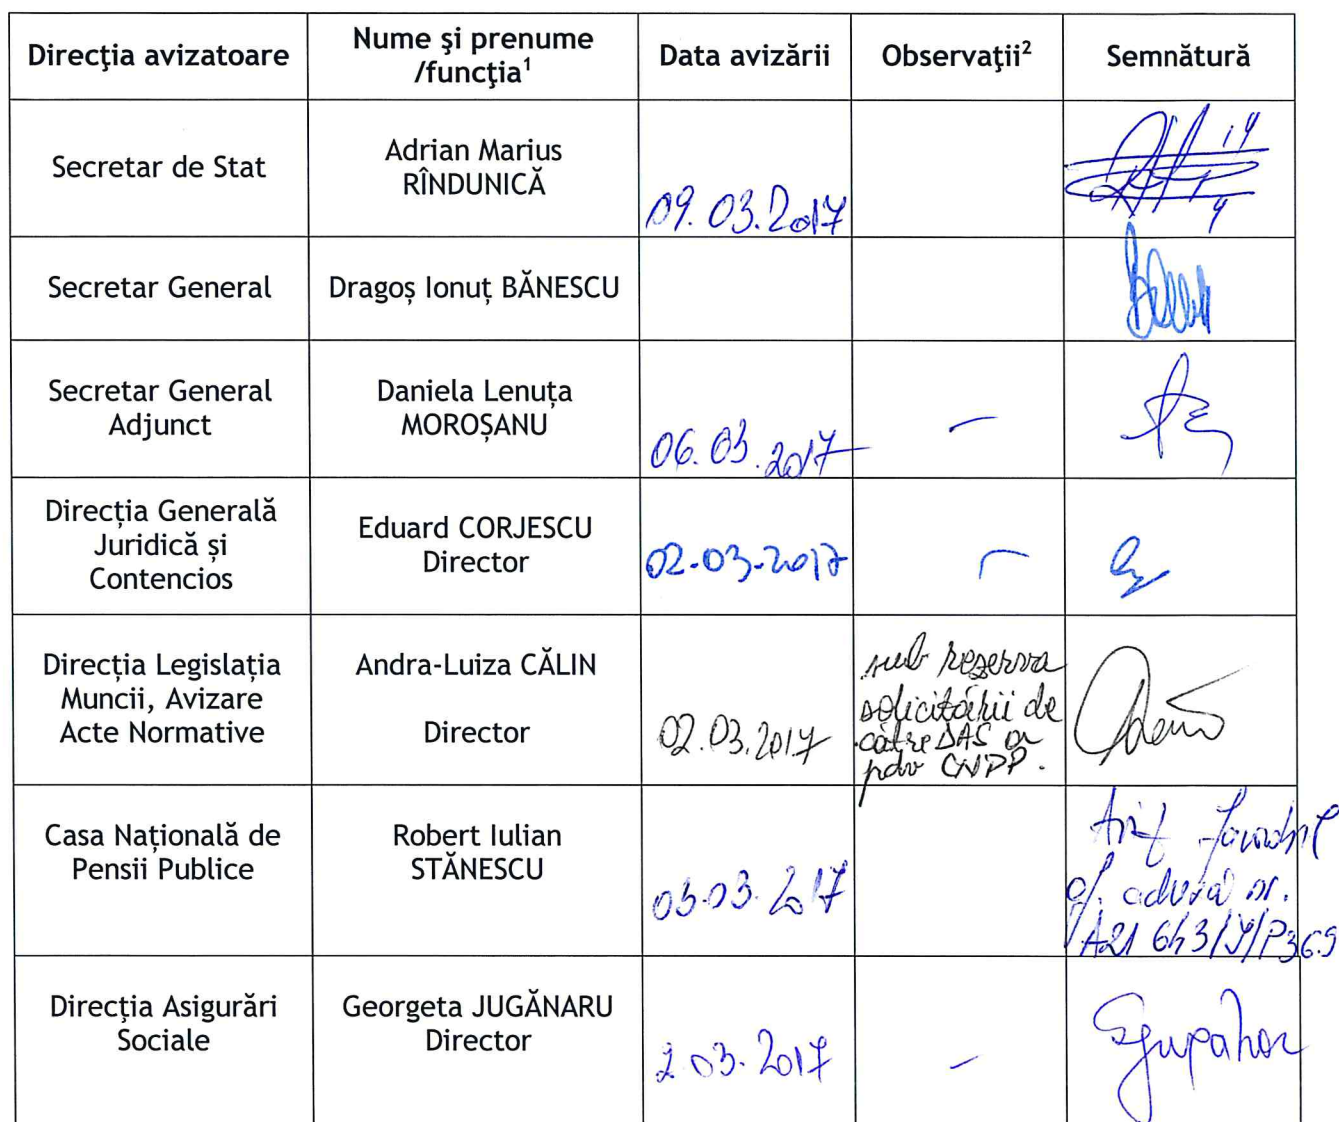 Direcţia avizatoare
Nume şi prenume
/funcţia¹
Data avizării
Observaţii²
Semnătură
Secretar de Stat
Adrian Marius
RÎNDUNICĂ
09.03.2017
Secretar General
Dragoș Ionuț BĂNESCU
Secretar General
Adjunct
Daniela Lenuța
MOROȘANU
06.03.2017
–
Direcția Generală
Juridică și
Contencios
Eduard CORJESCU
Director
02-03-2017
–
Direcția Legislația
Muncii, Avizare
Acte Normative
Andra-Luiza CĂLIN
Director
02.03.2017
sub rezerva
solicitării de
către DAS a
pdv CNPP.
Casa Națională de
Pensii Publice
Robert Iulian
STĂNESCU
03.03.2017
Aviz favorabil
cf. adresă nr.
Direcția Asigurări
Sociale
Georgeta JUGĂNARU
Director
2.03.2017
–